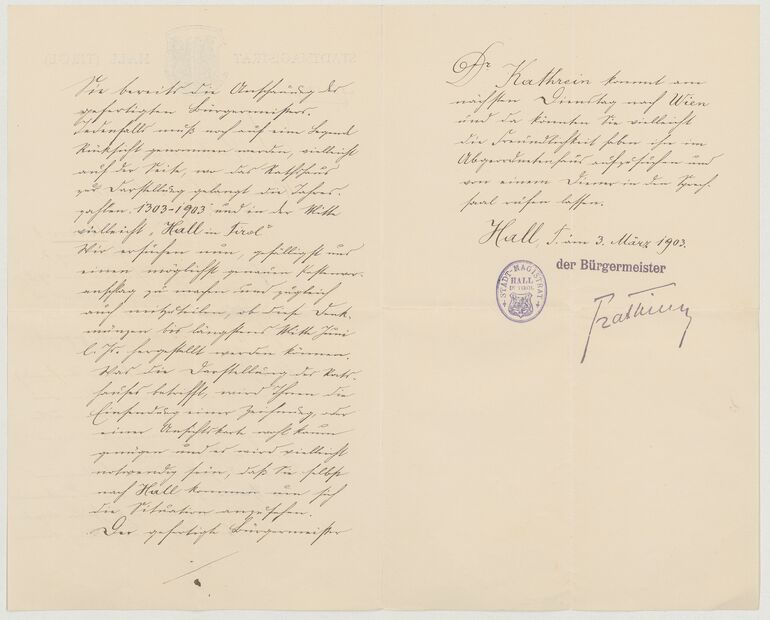 Sie bereits die Anschauung des
gefertigten Bürgermeisters.
Jedenfalls muß noch auf eine Legend
Rücksicht genommen werden, vielleicht
auf der Seite, wo das Rathshaus
zur Darstellung gelangt die Jahres-
zahlen 1303-1903 und in der Mitte
vielleicht „Hall in Tirol"
Wir ersuchen nun, gefälligst uns
einen möglichst genauen Kostenvor-
anschlag zu machen und zugleich
auch mitzuteilen, ob diese Denk-
münzen bis längstens Mitte Juni
l. Js. hergestellt werden können.
Was die Darstellung des Rats-
hauses betrifft, wird Ihnen die
Einsendung einer Zeichnung, oder
einer Ansichtskarte wohl kaum
genügen und es wird vielleicht
notwendig sein, daß Sie selbst
nach Hall kommen um sich
die Situation anzusehen.
Der gefertigte Bürgermeister
Dr. Kathrein kommt am
nächsten Dienstag nach Wien
und da könnten Sie vielleicht
die Freundlichkeit haben ihn im
Abgeordnetenhaus aufzusuchen und
von einem Diener in den Sprech-
saal rufen lassen.
Hall, T. am 3. März 1903.
der Bürgermeister
STADT-MAGISTRAT
HALL
IN TIROL
Kathrein